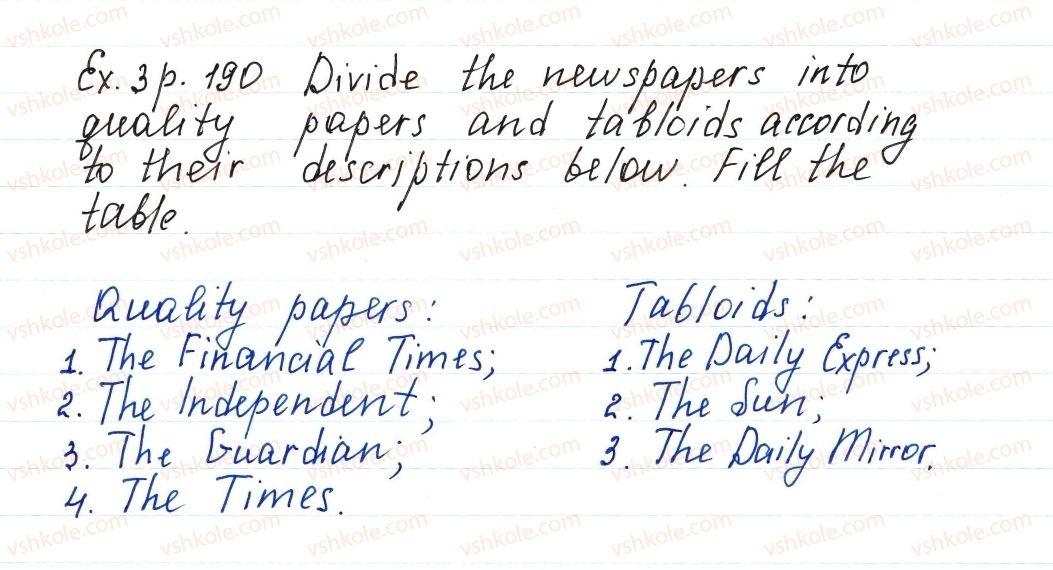 Ex. 3 p. 190 Divide the newspapers into
quality papers and tabloids according
to their descriptions below. Fill the
table.
Quality papers:
1. The Financial Times;
2. The Independent;
3. The Guardian;
4. The Times.
Tabloids:
1. The Daily Express;
2. The Sun;
3. The Daily Mirror.
vshkole.com